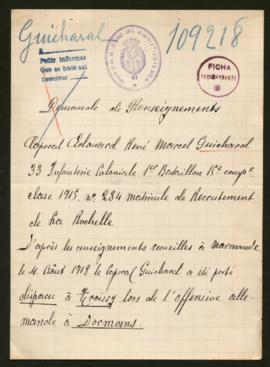 Guicharal
109218
A
Pedir informes
Que se hate asi
Devolver
FICHA
Demande de Renseignements
Caporal Edouard René Marcel Guicharal
33 Infanterie Coloniale 1er Bataillon
classe 1915. no 284 matricule de Recrutement
de La Rochelle
D'après les renseignements recueillis à Marmande
le 4 Août 1918 le Caporal Guicharal a été porté
disparu à Troissy lors de l'offensive alle-
mande à Dormans.